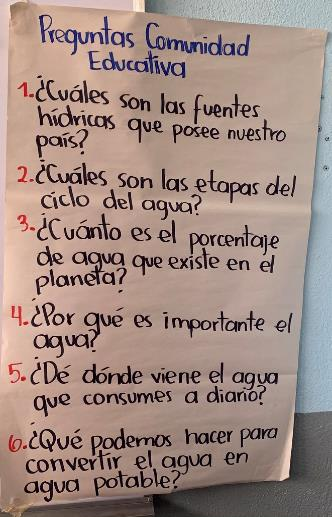 Preguntas Comunidad
Educativa
1. ¿Cuáles son las fuentes
hídricas que posee nuestro
país?
2. ¿Cuáles son las etapas del
ciclo del agua?
3. ¿Cuánto es el porcentaje
de agua que existe en el
planeta?
4. ¿Por qué es importante el
agua?
5. ¿Dé dónde viene el agua
que consumes a diario?
6. ¿Qué podemos hacer para
convertir el agua en
agua potable?